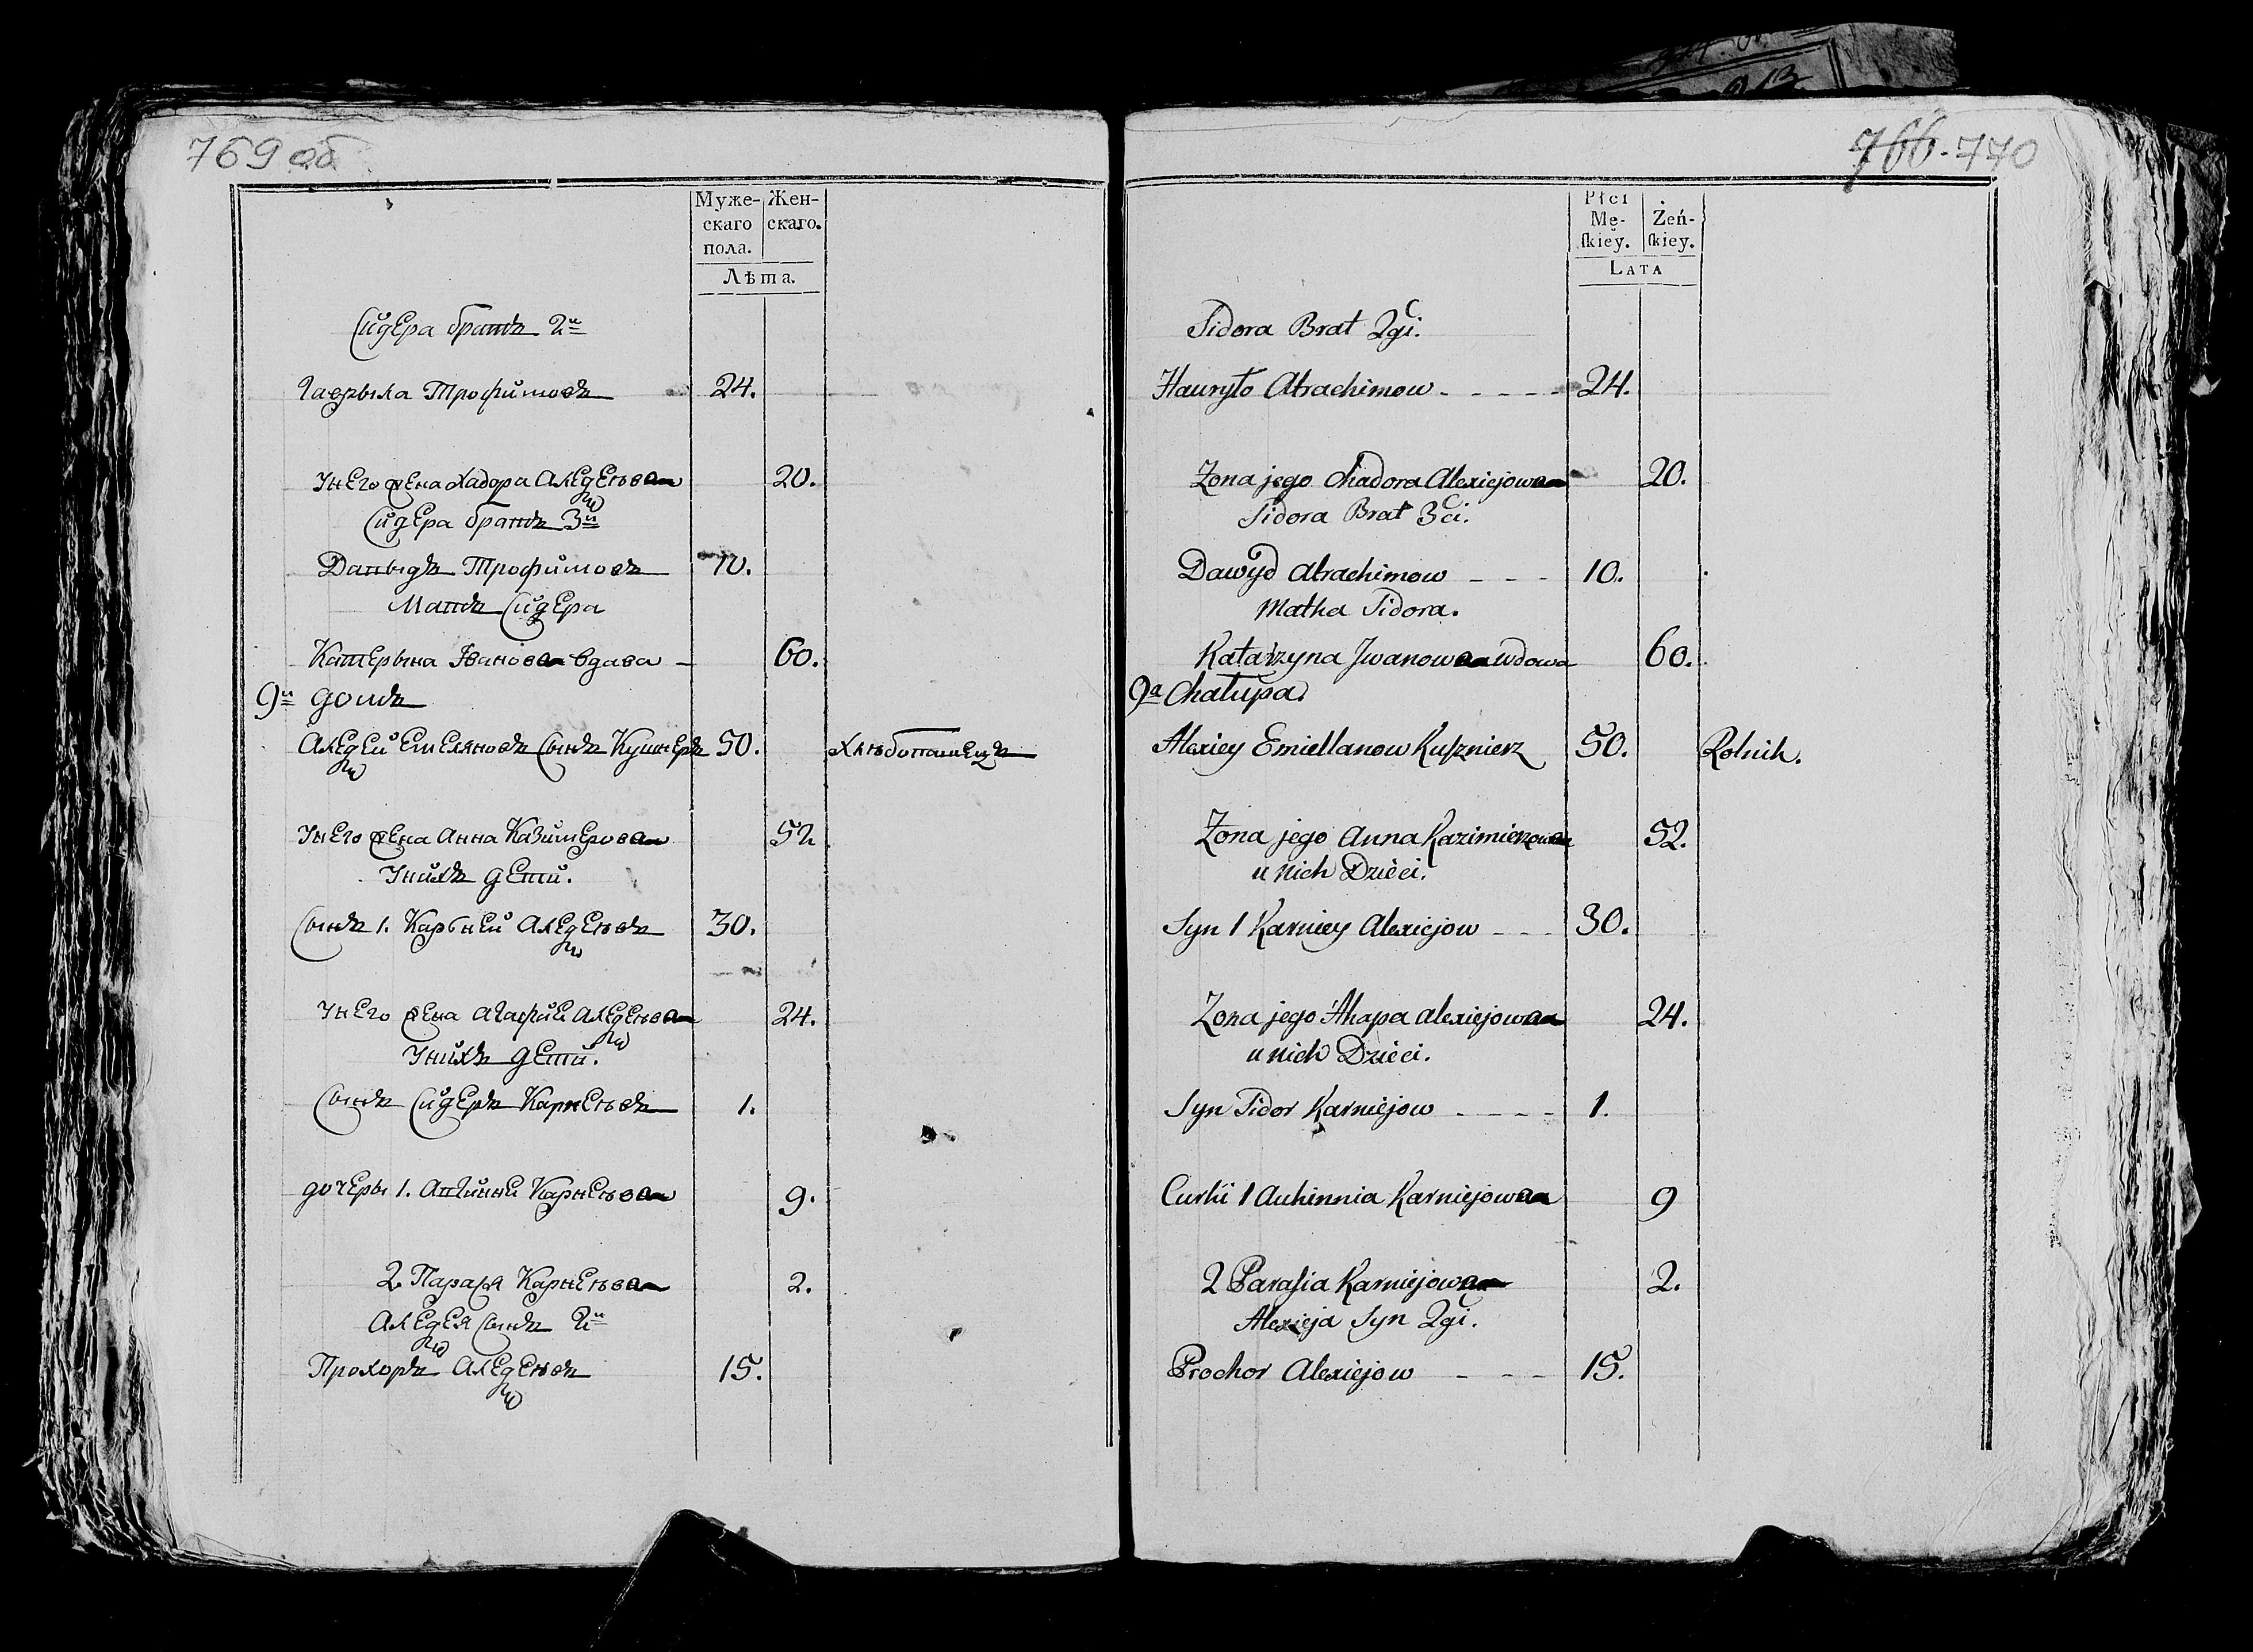 769 об
Муже- Жен-
скаго скаго.
пола.
Лѣта.
Сидера братъ 2й
Гаврыла Трофимовъ 24.
Унего жена Хадора Алецеева 20.
Сидера братъ 3й
Давыдъ Трофимовъ 10.
Мать Сидера
Катерына Іванова вдава 60.
9й домъ
Алецей Емеляновъ сынъ Кушнеръ 50. Хлѣбопашецъ
Унего жена Анна Казимерова 52
Унихъ дети.
Сынъ 1. Карьней Алецеевъ 30.
Унего жена Агафие Алецеева 24.
Унихъ дети.
Сынъ Сидеръ Карнеевъ 1.
дочеры 1. Карнеева 9.
2. Парася Карнеева 2.
Алецея сынъ 2й
Прохоръ Алецеевъ 15.
766. 770
Płci
Mę- Żeń-
ſkiey. ſkiey.
LATA
Sidora Brat 2gi.
Hauryło Atrachimow - - - - - 24.
Zona jego Chadora Alexiejowa 20.
Sidora Brat 3ci.
Dawyd Atrachimow - - - 10.
Matka Sidora.
Katarzyna Jwanowa wdowa 60.
9a Chałupa.
Alexiey Emiellanow Kuſznierz 50. Rolnik.
Zona jego Anna Kazimierzowa 52.
u nich Dzieci.
Syn 1 Karniey Alexiejow - - - 30.
Zona jego Ahapa Alexiejowa 24.
u nich Dzieci.
Syn Sidor Karniejow - - - - 1.
Curki 1 Auhinnia Karniejowa 9
2 Paraſia Karniejowa 2.
Alexieja Syn 2gi.
Prochor Alexiejow - - - 15.